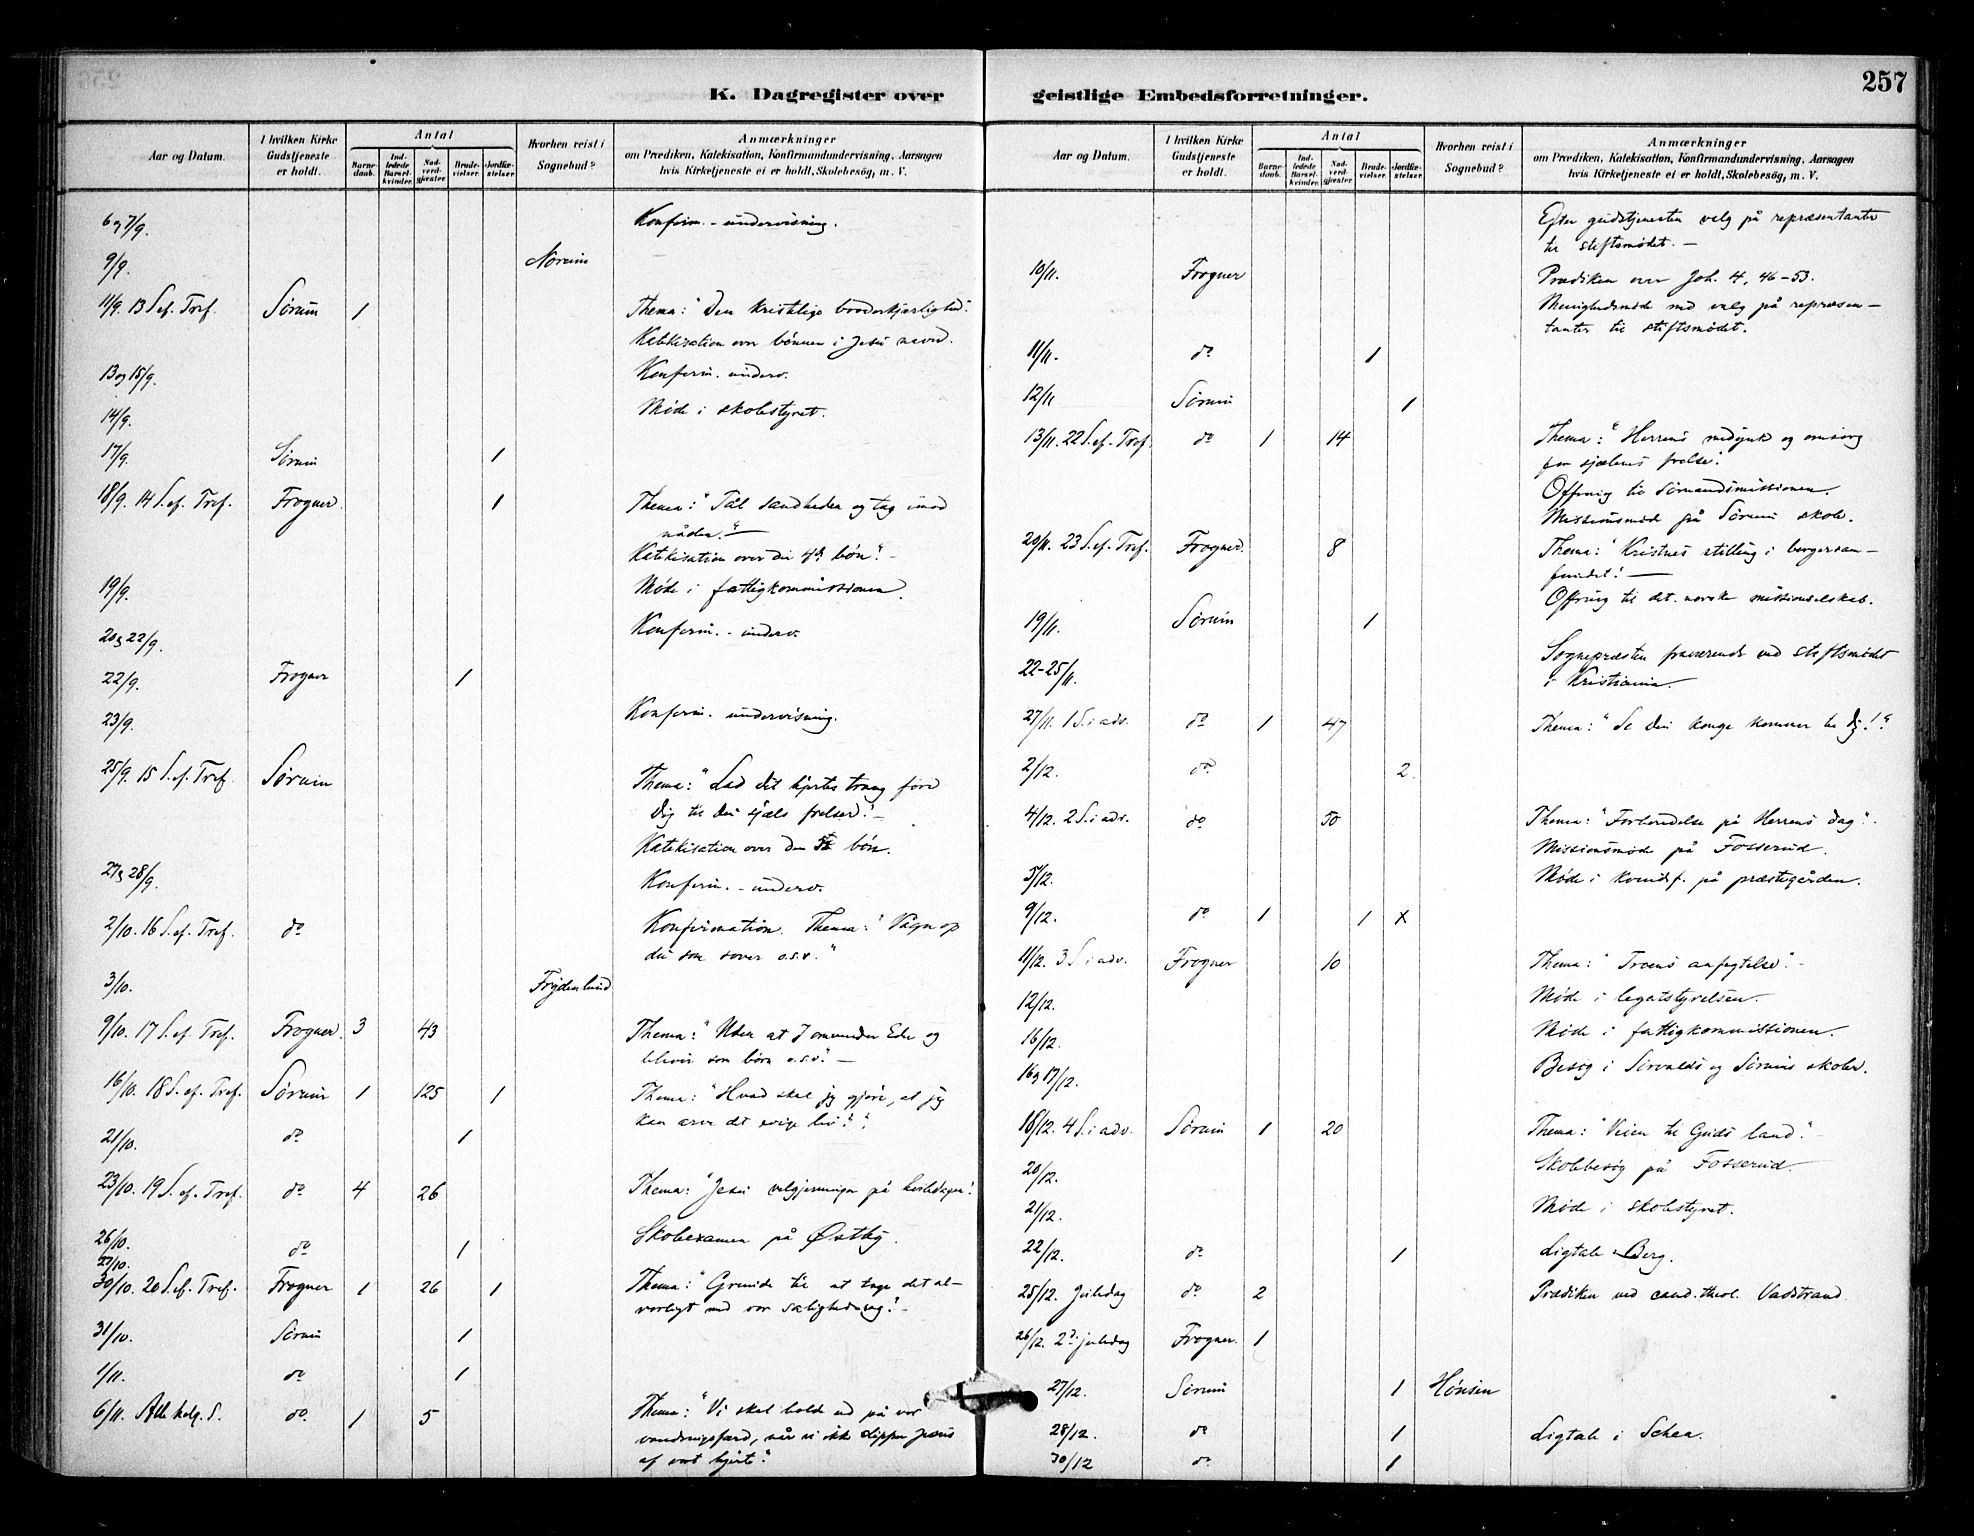 257
K. Dagregister over geistlige Embedsforretninger.
Aar og Datum. I hvilken Kirke Gudstjeneste er holdt. Antal Barnedaab. Indledede Barselkvinder. Nadverdgjæster. Brudevielser. Jordfæstelser. Hvorhen reist i Sognebud? Anmærkninger om Prædiken, Katekisation, Konfirmandundervisning, Aarsagen hvis Kirketjeneste ei er holdt, Skolebesög, m. V.
6 og 7/9. Konfirm.-undervisning.
9/9. Norum
11/9. 13 S. ef. Tref. Sørum 1 Thema: "Den kristelige broderkjærlighed".
Katekisation over bønnen i Jesu navn.
13 og 15/9. Konfirm. underv.
14/9. Møde i skolestyret.
17/9. Sørum 1
18/9. 14 S. ef. Tref. Frogner 1 Thema: "Tål sandheden og tag imod
nåden." —
Katekisation over den 4de bøn. —
19/9. Møde i fattigkommissionen.
20 og 22/9. Konfirm.-underv.
22/9. Frogner 1
23/9. Konfirm. undervisning.
25/9. 15 S. ef. Tref. Sørum Thema: "Lad dit hjertes trang føre
dig til din sjæls frelser!" —
Katekisation over den 5te bøn.
27 og 28/9. Konfirm.-underv.
2/10. 16 S. ef. Tref. do Konfirmation. Thema: "Vågn op
du som sover o.s.v."
3/10. Frydenlund
9/10. 17 S. ef. Tref. Frogner. 3 43 Thema: "Uden at I omvender Eder og
bliver som børn o.s.v." —
16/10. 18 S. ef. Tref. Sørum 1 125 1 Thema: "Hvad skal jeg gjøre, at jeg
kan arve det evige liv?"
21/10. do 1
23/10. 19 S. ef. Tref. do 4 26 Thema: "Jesu velgjerninger på hviledagen!"
26/10. Skoleexamen på Østby.
27/10. do 1
30/10. 20 S. ef. Tref. Frogner 1 26 1 Thema: "Grunde til at tage det al-
vorligt med vor salighedssag!" —
31/10. Sørum 1
1/11. do 1
6/11. Alle helg. S. do. 1 5 Thema: "Vi skal holde ud på vor
vandringsfærd, når vi ikke slipper Jesus
af vort hjerte."
Aar og Datum. I hvilken Kirke Gudstjeneste er holdt. Antal Barnedaab. Indledede Barselkvinder. Nadverdgjæster. Brudevielser. Jordfæstelser. Hvorhen reist i Sognebud? Anmærkninger om Prædiken, Katekisation, Konfirmandundervisning, Aarsagen hvis Kirketjeneste ei er holdt, Skolebesög, m. V.
Efter gudstjenesten valg på repræsentanter
til stiftsmødet. —
10/11. Frogner Prædiken over Joh. 4, 46-53.
Menighedsmøde med valg på repræsen-
tanter til stiftsmødet.
11/11. do 1
12/11 Sørum 1
13/11. 22 S. ef. Tref. do 1 14 Thema: "Herrens medynk og omsorg
for sjælens frelse".
Offring til Sømandsmissionen.
Missionsmøde på Sørum skole.
20/11. 23 S. ef. Tref. Frogner. 8 Thema: "Kristnes stilling i borgersam-
fundet! —
Offring til det norske missionselskab.
19/11. Sørum 1
22-25/11. Sognepræsten fraværende ved stiftsmødet
i Kristiania.
27/11. 1 S. i adv. do 1 47 Thema: "Se din konge kommer til dig!"
2/12. do 2.
4/12. 2 S. i adv. do 50 Thema: "Forberedelse på Herrens dag".
Missionsmøde på Fosserud.
5/12. Møde i kvindef. på præstegården.
9/12. do 1 1 X
11/12. 3 S. i adv. Frogner 10 Thema: "Troens anfægtelse". —
12/12. Møde i legatstyrelsen.
16/12. Møde i fattigkommissionen.
16 og 17/12. Besøg i Sørvalds og Sørums skoler.
18/12. 4 S. i adv. Sørum 1 20 Thema: "Veien til Guds land." —
20/12. Skolebesøg på Fosserud.
21/12. Møde i skolestyret.
22/12. do 1 Ligtale Berg.
25/12. Juledag do 2 Prædiken ved cand. theol. Vadstrand.
26/12. 2d. juledag Frogner. 1
27/12. Sørum 1 Hønsen
28/12. do 1 Ligtale i Schea.
30/12 do 1